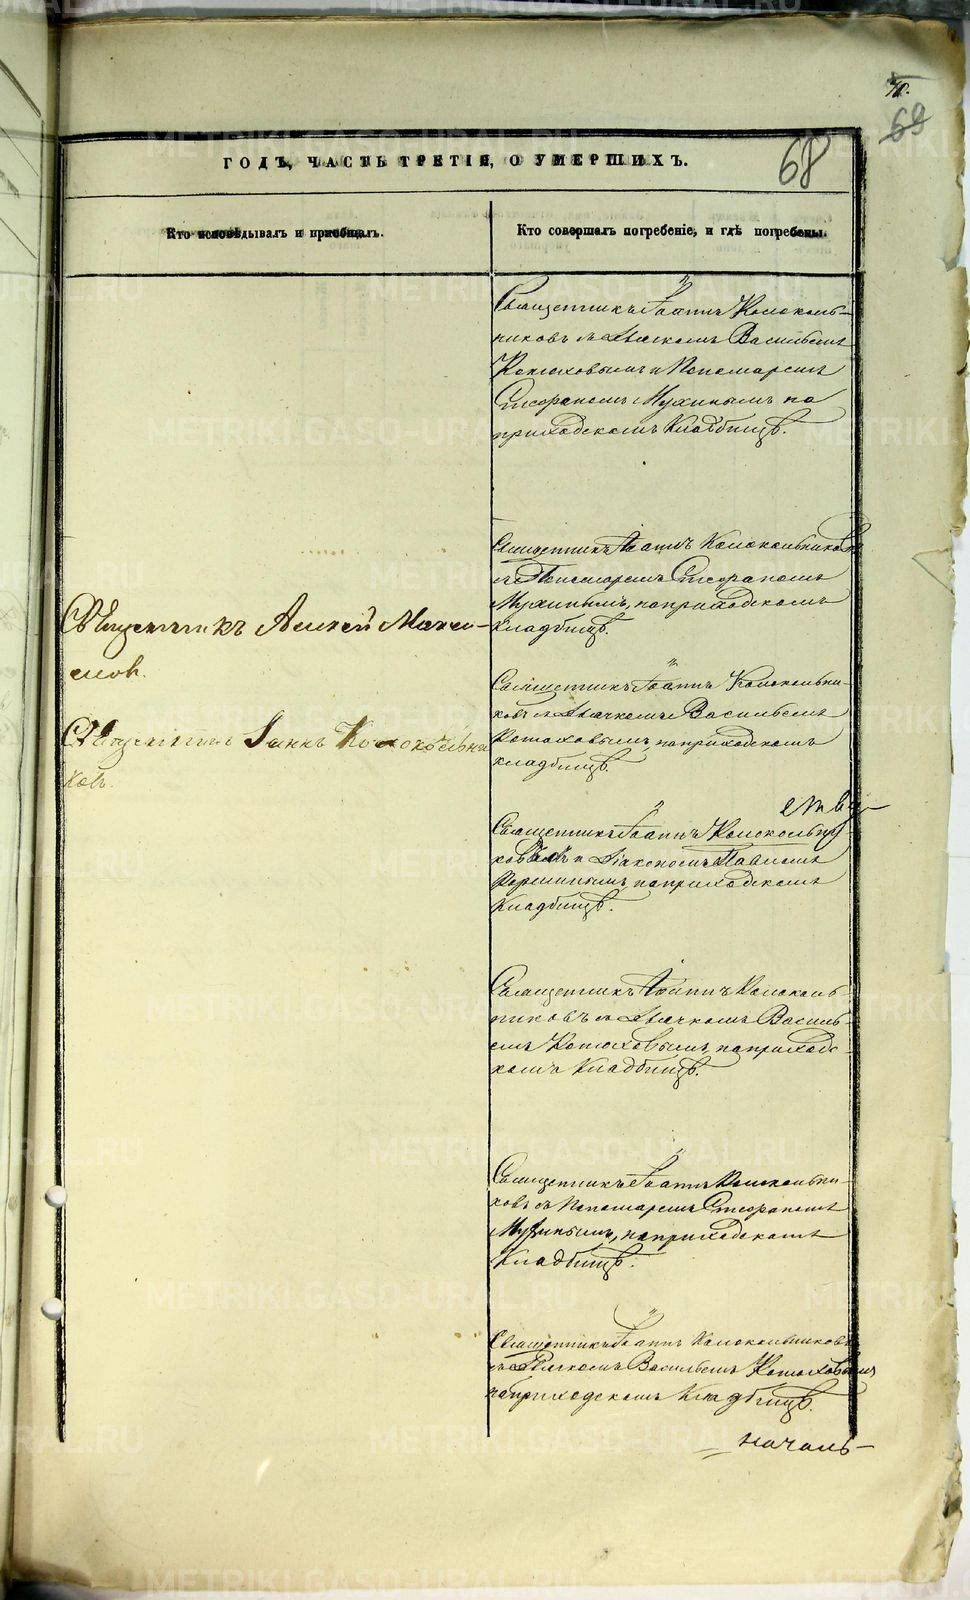 70.
69
68
ГОДЪ, ЧАСТЬ ТРЕТІЯ, О УМЕРШИХЪ.
Кто исповѣдывалъ и пріобщалъ.
Кто совершалъ погребеніе, и гдѣ погребены.
Священникъ Іоаннъ Колоколь-
никовъ съ Дьячкомъ Васильемъ
Конюховымъ и Пономаремъ
Стефаномъ Мухинымъ на
приходскомъ кладбищѣ.
Священникъ Іоаннъ Колокольниковъ
съ Пономаремъ Стефаномъ
Мухинымъ, на приходскомъ
кладбищѣ.
Священникъ Алексей Макси-
мовъ.
Священникъ Іоаннъ Колокольни-
ковъ съ Дьячкомъ Васильемъ
Конюховымъ, на приходскомъ
кладбищѣ.
Священникъ Іоаннъ Колокольни
ковъ.
ству-
Священникъ Іоаннъ Колокольни-
ковъ съ Діакономъ Павломъ
на приходскомъ
Кладбищѣ.
Священникъ Іоаннъ Колоколь-
никовъ съ Дьячкомъ Василь-
емъ Конюховымъ, на приходс-
комъ Кладбищѣ.
Священникъ Іоаннъ Колокольни-
ковъ съ Пономаремъ Стефаномъ
Мухинымъ, на приходскомъ
Кладбищѣ.
Священникъ Іоаннъ Колокольниковъ
съ Дьячкомъ Васильемъ Конюховымъ
на приходскомъ Кладбищѣ.
началь-
METRIKI.GASO-URAL.RU